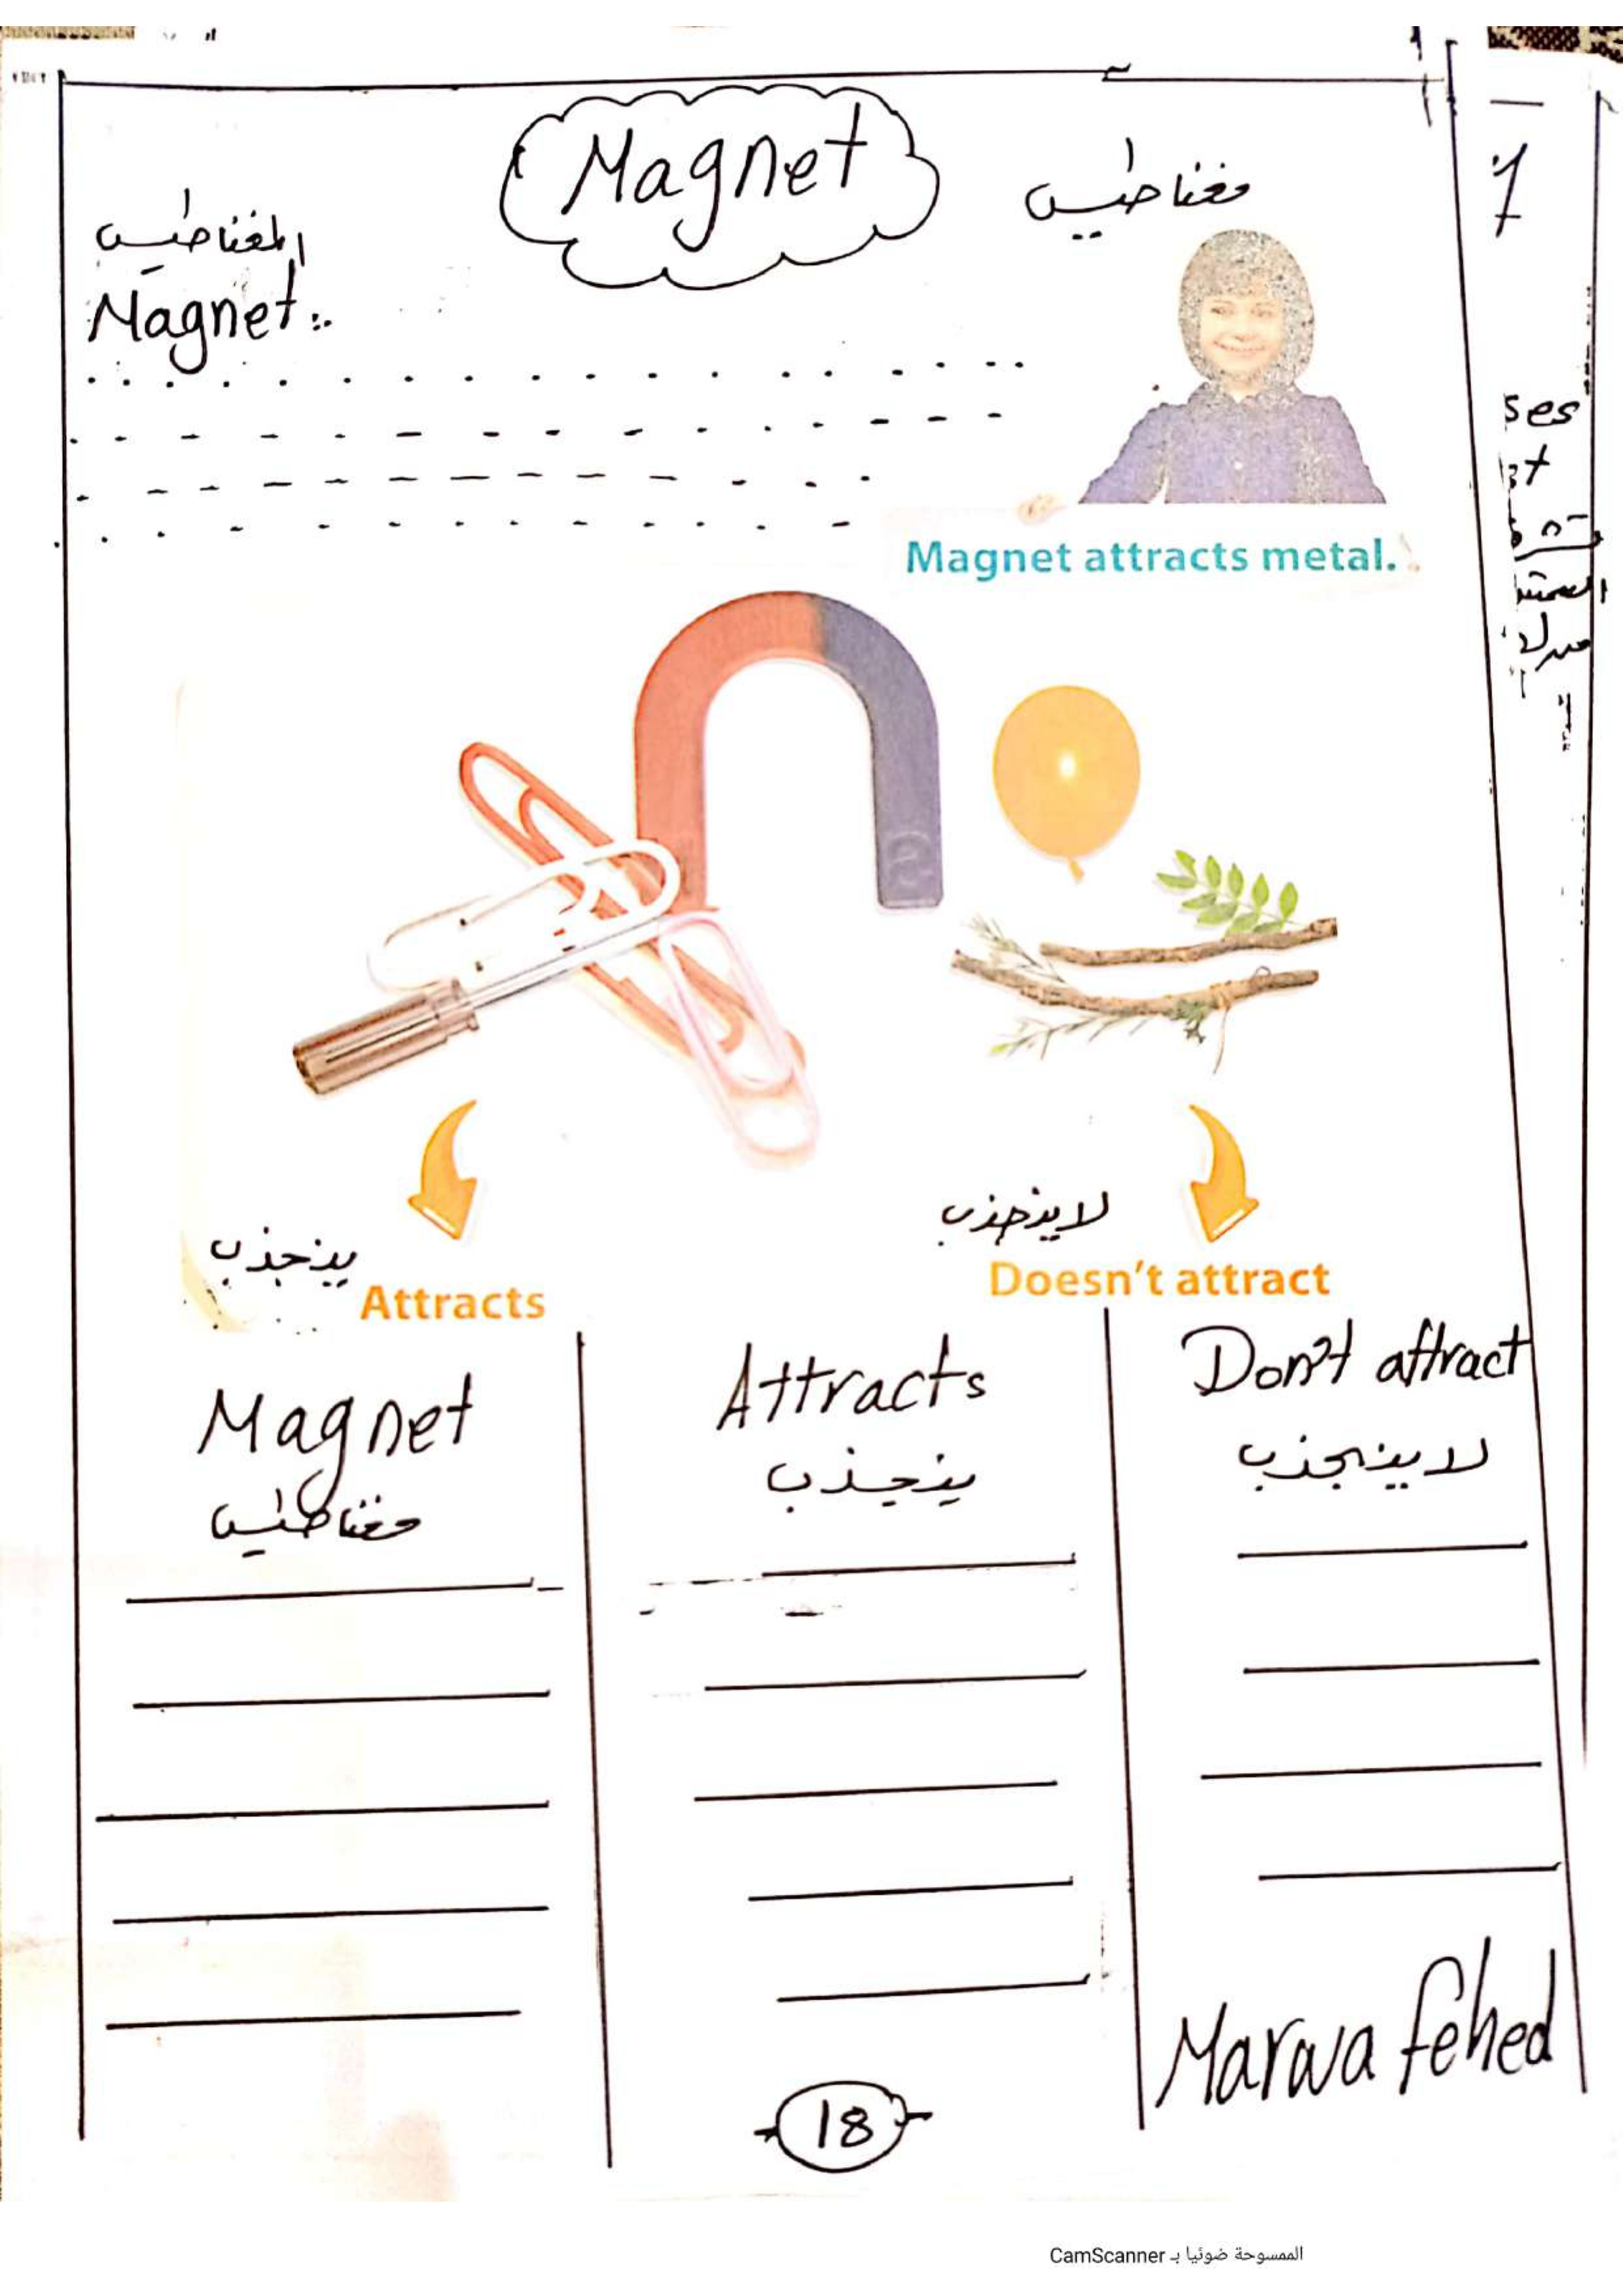 Magnet
مغناطيس
المغناطيس
Magnet:
Magnet attracts metal.
S
ينجذب
Attracts
لا ينجذب
Doesn't attract
Magnet
مغناطيس
Attracts
ينجذب
Don't attract
لا ينجذب
Marwa fehed
18
الممسوحة ضوئيا بـ CamScanner